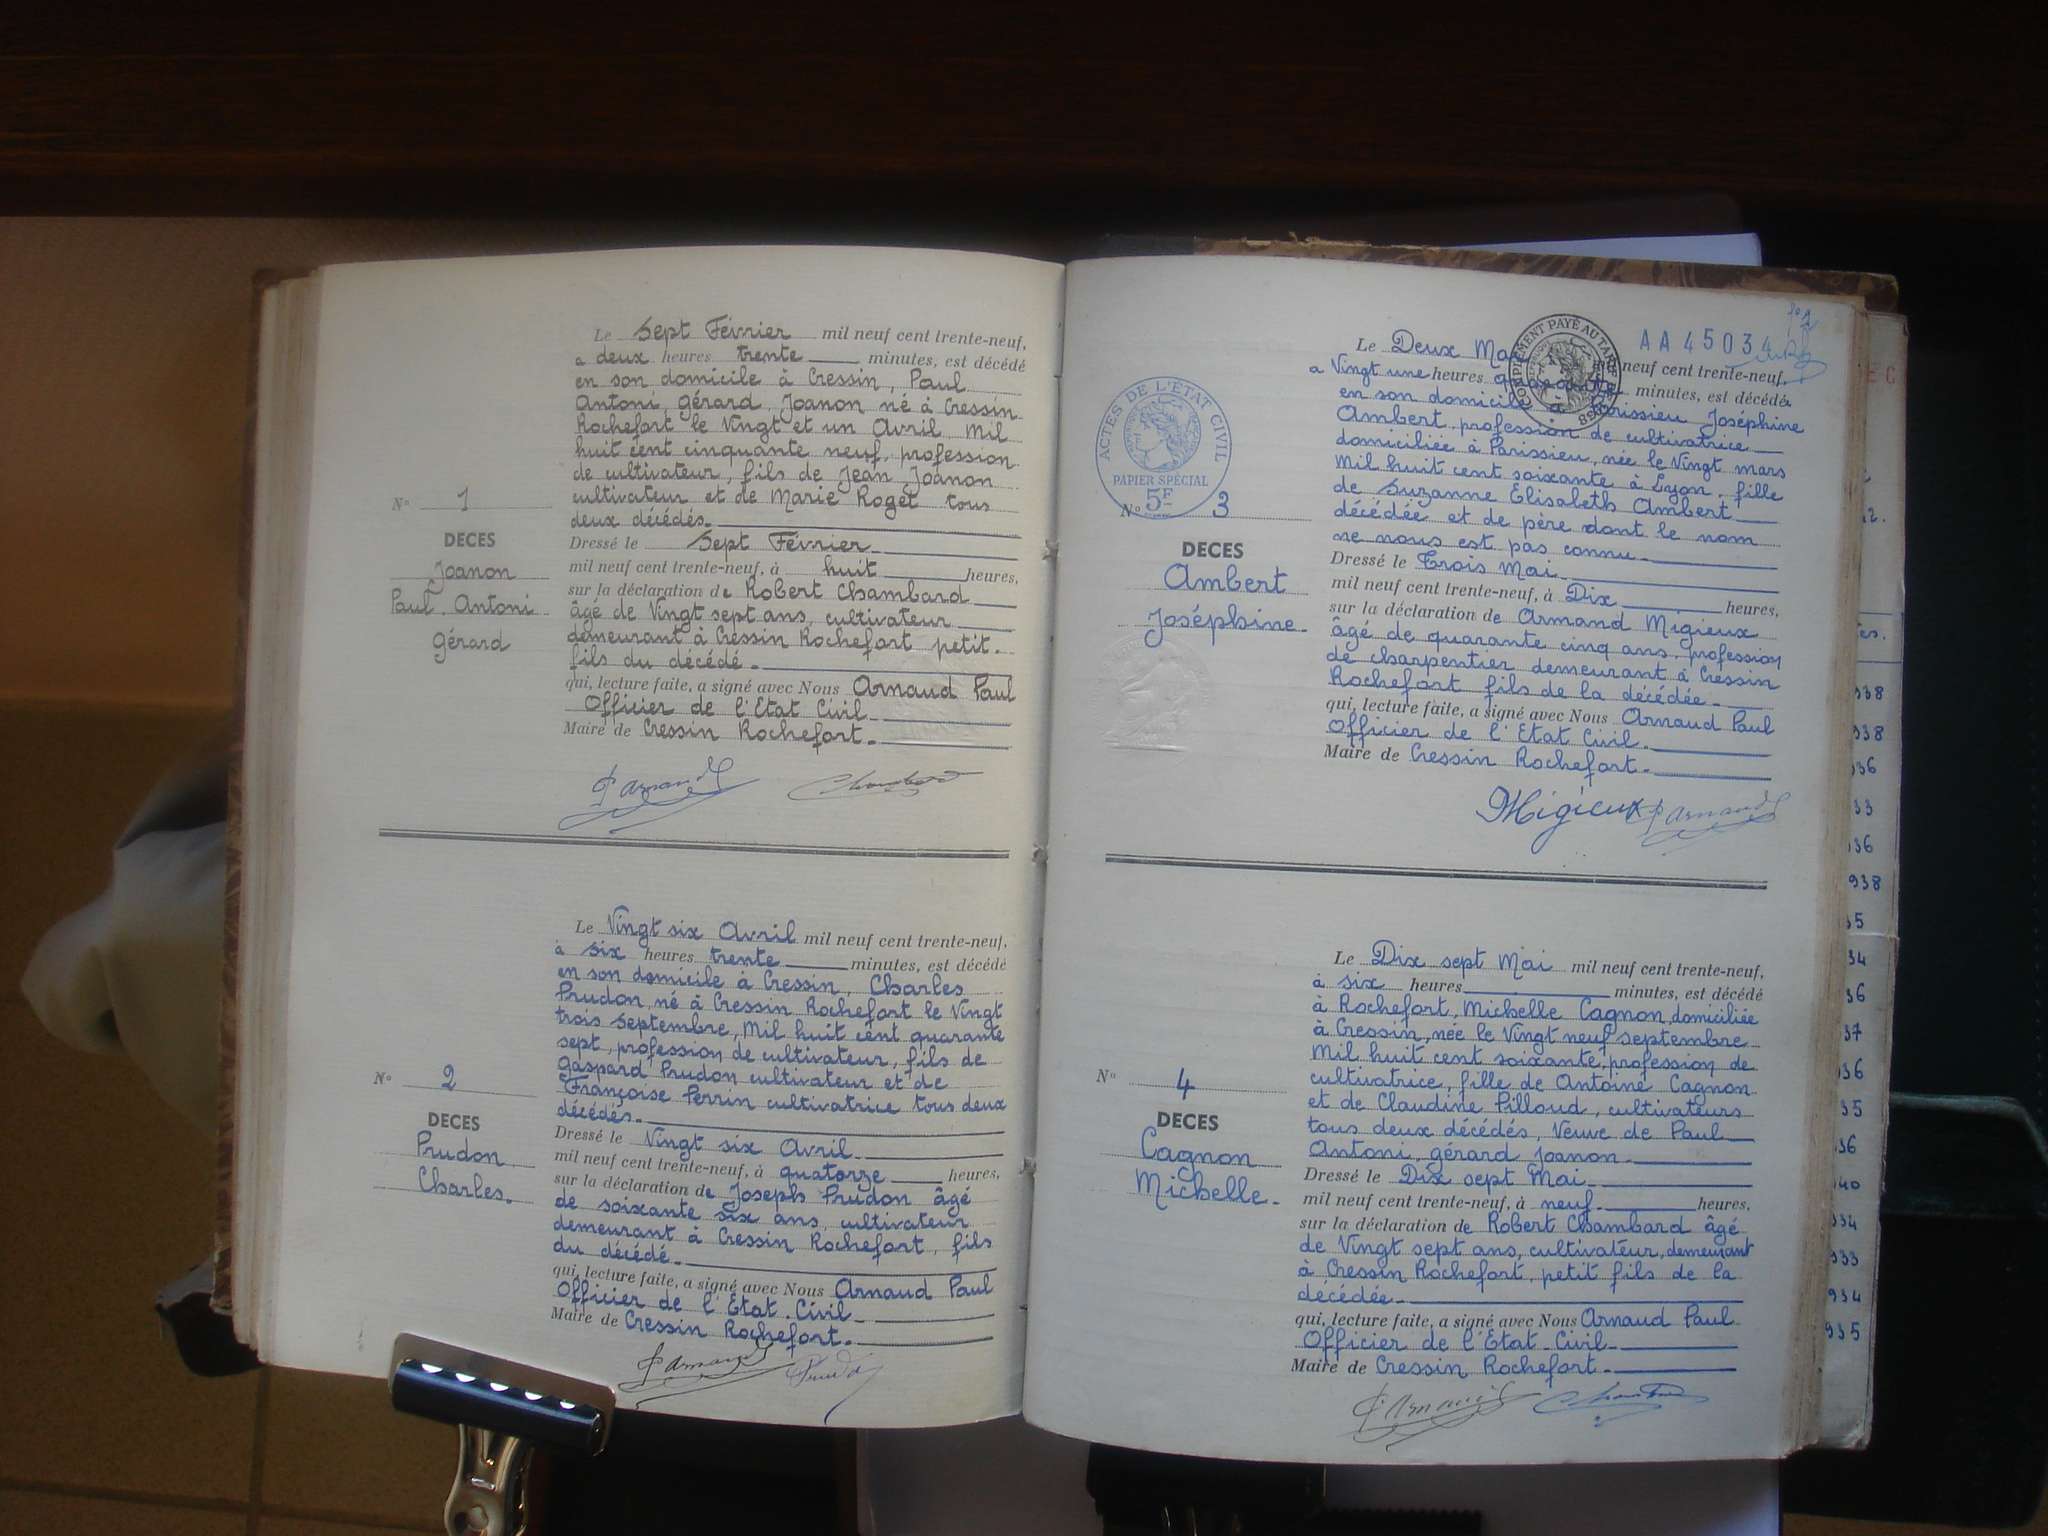 Le Sept Février mil neuf cent trente-neuf,
a deux heures trente minutes, est décédé
en son domicile à Cressin, Paul
Antoni, Gérard, Joanon né à Cressin
Rochefort le Vingt et un Avril Mil
huit cent cinquante neuf, profession
de cultivateur, fils de Jean Joanon
cultivateur et de Marie Roget tous
deux décédés.
N° 1
DECES
Joanon
Paul Antoni
Gérard
Dressé le Sept Février
mil neuf cent trente-neuf, à huit heures,
sur la déclaration de Robert Chambard
âgé de Vingt sept ans, cultivateur
demeurant à Cressin Rochefort petit-
fils du décédé.
qui, lecture faite, a signé avec Nous Arnaud Paul
Officier de l'Etat Civil
Maire de Cressin Rochefort.
P Arnaud Chambard
Le Vingt six Avril mil neuf cent trente-neuf,
à six heures trente minutes, est décédé
en son domicile à Cressin, Charles
Prudon, né à Cressin Rochefort le Vingt
trois septembre, Mil huit cent quarante
sept, profession de cultivateur, fils de
Gaspard Prudon cultivateur et de
Françoise Perrin cultivatrice tous deux
décédés.
N° 2
DECES
Prudon
Charles.
Dressé le Vingt six Avril
mil neuf cent trente-neuf, à quatorze heures,
sur la déclaration de Joseph Prudon âgé
de soixante six ans, cultivateur
demeurant à Cressin Rochefort, fils
du décédé.
qui, lecture faite, a signé avec Nous Arnaud Paul
Officier de l'Etat Civil
Maire de Cressin Rochefort.
P Arnaud
AA 45034
COMPLEMENT PAYÉ AU TARIF
ACTES DE L'ÉTAT CIVIL
PAPIER SPÉCIAL
5F
Le Deux Mai neuf cent trente-neuf,
a Vingt une heures quarante minutes, est décédée
en son domicile à Parissieu Joséphine
Ambert, profession de cultivatrice
domiciliée à Parissieu, née le Vingt mars
Mil huit cent soixante à Lyon, fille
de Suzanne Elisabeth Ambert
décédée et de père dont le nom
ne nous est pas connu
N° 3
DECES
Ambert
Joséphine
Dressé le Trois Mai
mil neuf cent trente-neuf, à Dix heures,
sur la déclaration de Armand Migieux
âgé de quarante cinq ans, profession
de charpentier demeurant à Cressin
Rochefort fils de la décédée
qui, lecture faite, a signé avec Nous Arnaud Paul
Officier de l'Etat Civil
Maire de Cressin Rochefort.
Migieux P Arnaud
Le Dix sept Mai mil neuf cent trente-neuf,
à six heures minutes, est décédé
à Rochefort, Michelle Cagnon, domiciliée
à Cressin, née le Vingt neuf septembre
Mil huit cent soixante, profession de
cultivatrice, fille de Antoine Cagnon
et de Claudine Pilloud, cultivateurs
tous deux décédés, Veuve de Paul
Antoni, gérard Joanon
N° 4
DECES
Cagnon
Michelle
Dressé le Dix sept Mai
mil neuf cent trente-neuf, à neuf heures,
sur la déclaration de Robert Chambard âgé
de Vingt sept ans, cultivateur, demeurant
à Cressin Rochefort, petit fils de la
décédée
qui, lecture faite, a signé avec Nous Arnaud Paul
Officier de l'Etat Civil
Maire de Cressin Rochefort
P Arnaud Chambard